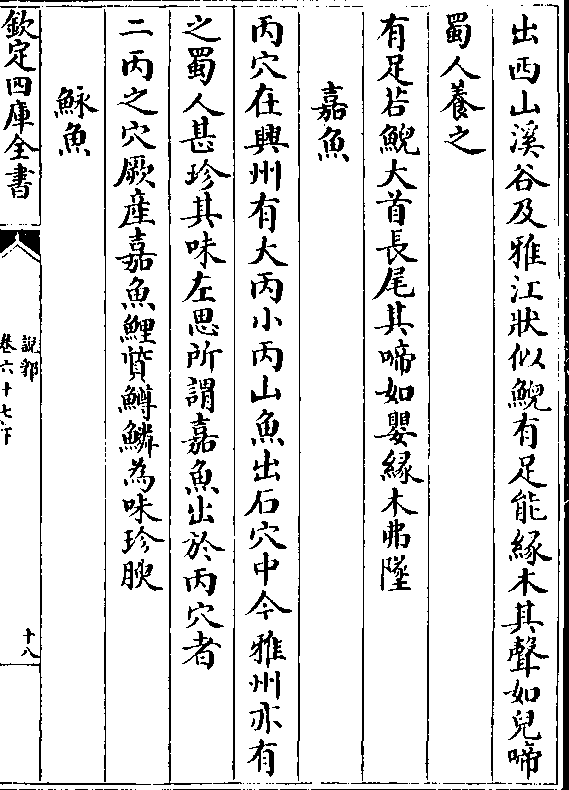 出西山溪谷及雅江狀似鯢有足能緣木其聲如兒啼
蜀人養之
有足若鯢大首長尾其啼如嬰緣木弗墜
嘉魚
丙穴在興州有大丙小丙山魚出石穴中今雅州亦有
之蜀人甚珍其味左思所謂嘉魚出於丙穴者
二丙之穴厥產嘉魚鯉質鱒鱗為味珍腴
鮴魚
欽定四庫全書
說郛
卷六十七下
十八